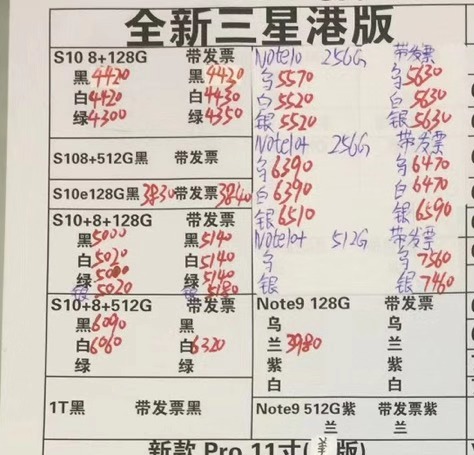 全新三星港版
S10 8+128G 带发票
黑4420 黑4420
白4420 白4430
绿4300 绿4350
S108+512G黑 带发票
S10e128G黑3830带发票3840
S10+8+128G 带发票
黑5000 黑5140
白5020 白5140
绿5000 绿5140
银5020 银5180
S10+8+512G 带发票
黑6090 黑
白6060 白6320
绿 绿
1T黑 带发票黑
Note10 256G 带发票
乌5570 乌5630
白5520 白5630
银5520 银5630
Note10+ 256G 带发票
乌6390 乌6470
白6390 白6470
银6510 银6590
Note10+ 512G 带发票
乌 乌7560
银 银7460
Note9 128G 带发票
乌 乌
兰3980 兰
紫 紫
白 白
Note9 512G紫 带发票紫
兰 兰
新款 Pro 11寸(美版)